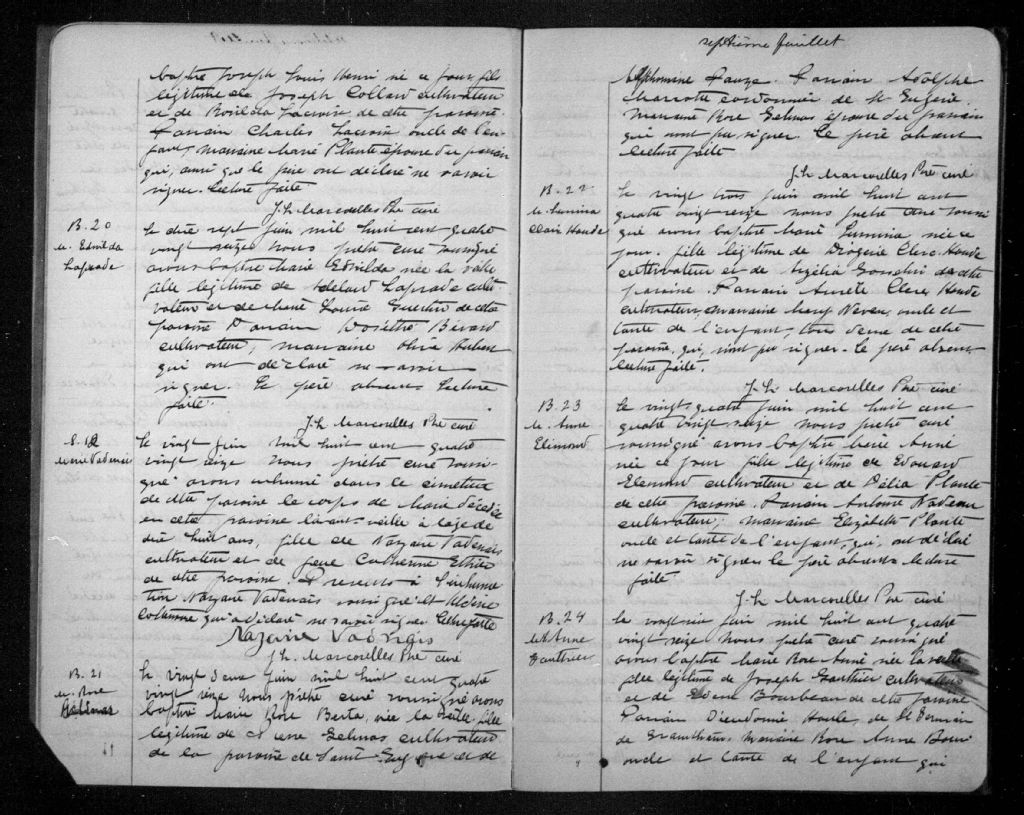 baptisé Joseph Louis Henri né ce jour fils
légitime de Joseph Collard cultivateur
et de Rosilda Lacroix de cette paroisse.
Parrain Charles Lacroix oncle de l'en-
fant, marraine Marie Plante épouse du parrain
qui, ainsi que le père ont déclaré ne savoir
signer. Lecture faite
J. h. Marcorelles Ptre curé
B. 20
M. Edvilda
Laprade
Le dix sept juin mil huit cent quatre
vingt seize nous prêtre curé soussigné
avons baptisé Marie Edvilda née la veille
fille légitime de Laprade culti
vateur et de Marie Louise de cette
paroisse Parrain Dosithé Bérard
cultivateur, marraine Olivia Hubert
qui ont déclaré ne savoir
signer. Le père absent Lecture
faite.
J. h. Marcorelles Ptre curé
Marie Vadenais
Le vingt juin mil huit cent quatre
vingt seize nous prêtre curé soussi-
gné avons inhumé dans le cimetière
de cette paroisse le corps de Marie décédée
en cette paroisse l'avant-veille à l'age de
dix huit ans, fille de Nazaire Vadenais
cultivateur et de feue Catherine Ethier
de cette paroisse. Présents à l'inhuma
tion Nazaire Vadenais soussigné et
qui a déclaré ne savoir signer Lecture faite
Nazaire Vadnais
J. h. Marcorelles Ptre curé
B. 21
M. Rose
Le vingt deux juin mil huit cent quatre
vingt seize nous prêtre curé soussigné avons
baptisé Marie Rose Berta, née la veille fille
légitime de Gelinas cultivateur
de la paroisse de Saint Eugène et de
septième feuillet
Alphonsine Lauzé. Parrain Adolphe
Marcotte cordonnier de St Eugène.
marraine Rose Gelinas épouse du parrain
qui n'ont pu signer. Le père absent
Lecture faite
J. h. Marcorelles Ptre curé
B. 22
M. Lumina
Clair Houde
Le vingt trois juin mil huit cent
quatre vingt seize nous prêtre curé soussi
gné avons baptisé Marie Lumina née ce
jour fille légitime de Clerc Houde
cultivateur et de Gosselin de cette
paroisse. Parrain Clerc Houde
cultivateur, marraine Mary Neveu oncle et
tante de l'enfant tous deux de cette
paroisse, qui, n'ont pu signer. Le père absent
Lecture faite.
J. h. Marcorelles Ptre curé
B. 23
M. Anne
Elémond
Le vingt quatre juin mil huit cent
quatre vingt seize nous prêtre curé
soussigné avons baptisé Marie Anne
née ce jour fille légitime de Edouard
Elémond cultivateur et de Délia Plante
de cette paroisse. Parrain Antoine Nadeau
cultivateur, marraine Elizabeth Plante
oncle et tante de l'enfant, qui, ont déclaré
ne savoir signer le père absent lecture
faite
J. h. Marcorelles Ptre curé
B. 24
Anne
Gauthier
Le vingt six juin mil huit cent quatre
vingt seize nous prêtre curé soussigné
avons baptisé Marie Rose Anne née la veille
fille légitime de Joseph Gauthier cultivateur
et de Bourbeau de cette paroisse
Parrain Dieudonné Houle, de St Germain
de Grantham. Marraine Rose Anne
oncle et tante de l'enfant qui